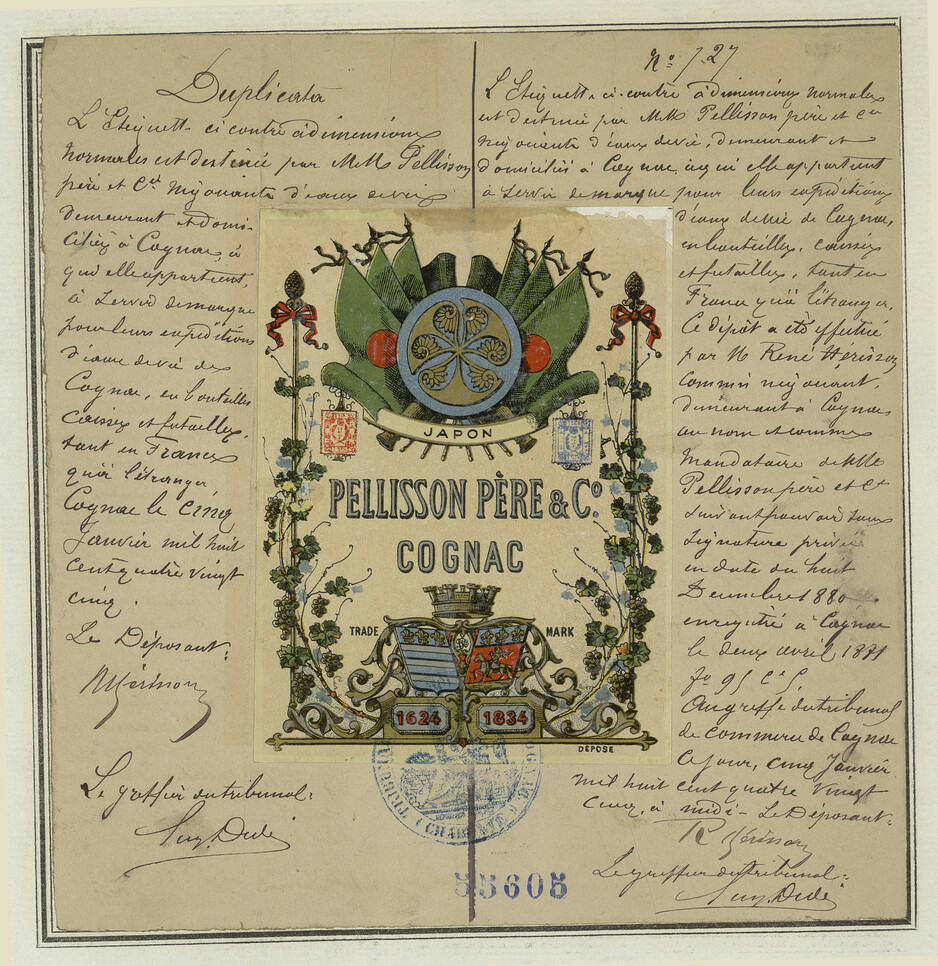 Duplicata
L'Etiquette ci contre à dimensions
normales est destinée par M.M. Pellisson
père et Cie négociants d'eaux de vie
demeurant et domi-
ciliés à Cognac, à
qui elle appartient,
à servir de marque
pour leurs expéditions
d'eaux de vie de
Cognac, en bouteilles
caisses et futailles,
tant en France
qu'à l'étranger,
Cognac le cinq
Janvier mil huit
cent quatre vingt
cinq.
Le Déposant:
R Hérisson
Le greffier du tribunal:
No 727
L'Etiquette ci-contre à dimensions normales
est destinée par M.M. Pellisson père et Cie
négociants d'eaux de vie, demeurant et
domiciliés à Cognac, à qui elle appartient
à servir de marque pour leurs expéditions
d'eaux de vie de Cognac,
en bouteilles, caisses
et futailles, tant en
France qu'à l'étranger,
Ce dépôt a été effectué
par M René Hérisson
commis négociant,
demeurant à Cognac
au nom et comme
mandataire de MM
Pellisson père et Cie
suivant pouvoir sous
signature privée
en date du huit
Décembre 1880
enregistré à Cognac
le deux avril 1881
fo 95 Cs 5,
Au greffe du tribunal
de commerce de Cognac
ce jour, cinq Janvier
mil huit cent quatre vingt
cinq, à midi - Le Déposant:
R Hérisson
Le greffier du tribunal:
JAPON
PELLISSON PÈRE & Co.
COGNAC
TRADE MARK
1624 1834
DÉPOSÉ
55605